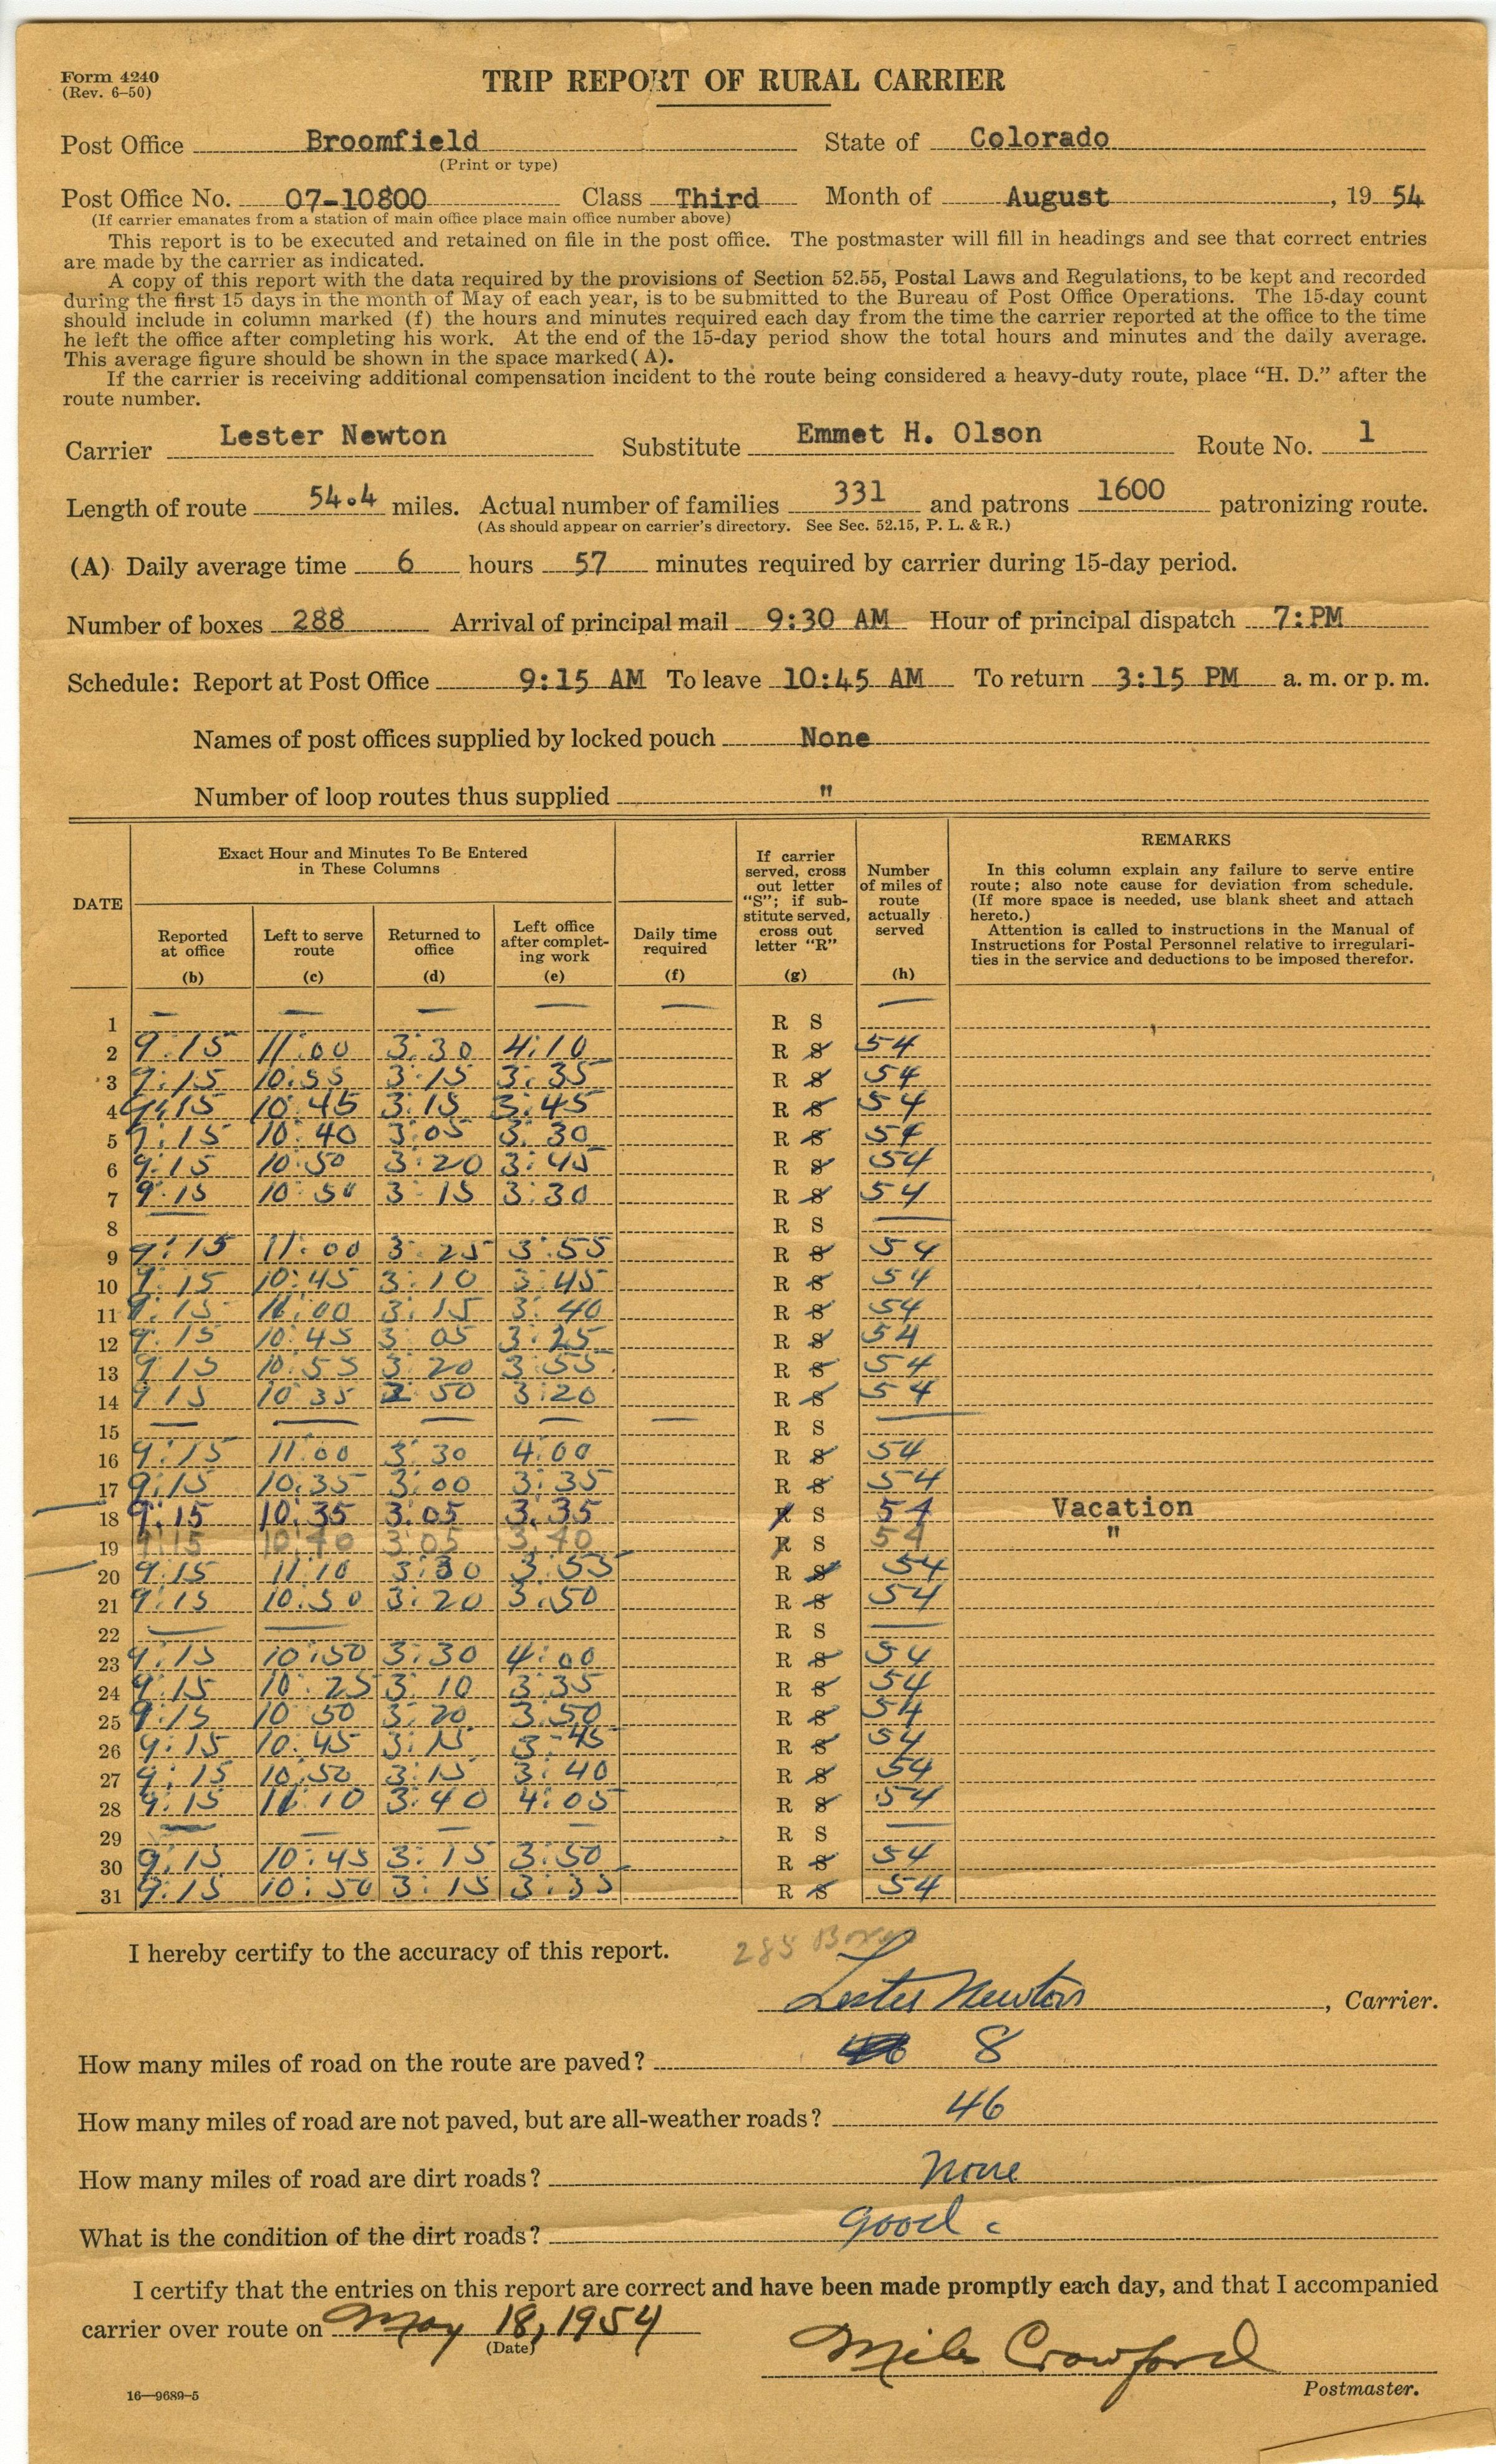 Form 4240
(Rev. 6–50)
TRIP REPORT OF RURAL CARRIER
Post Office Broomfield State of Colorado
(Print or type)
Post Office No. 07-10800 Class Third Month of August, 19 54
(If carrier emanates from a station of main office place main office number above)
This report is to be executed and retained on file in the post office. The postmaster will fill in headings and see that correct entries
are made by the carrier as indicated.
A copy of this report with the data required by the provisions of Section 52.55, Postal Laws and Regulations, to be kept and recorded
during the first 15 days in the month of May of each year, is to be submitted to the Bureau of Post Office Operations. The 15-day count
should include in column marked (f) the hours and minutes required each day from the time the carrier reported at the office to the time
he left the office after completing his work. At the end of the 15-day period show the total hours and minutes and the daily average.
This average figure should be shown in the space marked (A).
If the carrier is receiving additional compensation incident to the route being considered a heavy-duty route, place “H. D.” after the
route number.
Carrier Lester Newton Substitute Emmet H. Olson Route No. 1
Length of route 54.4 miles. Actual number of families 331 and patrons 1600 patronizing route.
(As should appear on carrier's directory. See Sec. 52.15, P. L. & R.)
(A) Daily average time 6 hours 57 minutes required by carrier during 15-day period.
Number of boxes 288 Arrival of principal mail 9:30 AM Hour of principal dispatch 7:PM
Schedule: Report at Post Office 9:15 AM To leave 10:45 AM To return 3:15 PM a. m. or p. m.
Names of post offices supplied by locked pouch None
Number of loop routes thus supplied "
DATE
Exact Hour and Minutes To Be Entered
in These Columns
Reported
at office
(b)
Left to serve
route
(c)
Returned to
office
(d)
Left office
after complet-
ing work
(e)
Daily time
required
(f)
If carrier
served, cross
out letter
“S”; if sub-
stitute served,
cross out
letter “R”
(g)
Number
of miles of
route
actually
served
(h)
REMARKS
In this column explain any failure to serve entire
route; also note cause for deviation from schedule.
(If more space is needed, use blank sheet and attach
hereto.)
Attention is called to instructions in the Manual of
Instructions for Postal Personnel relative to irregulari-
ties in the service and deductions to be imposed therefor.
1 — — — — — R S —
2 9:15 11:00 3:30 4:10 R S 54
3 9:15 10:55 3:15 3:35 R S 54
4 9:15 10:45 3:15 3:45 R S 54
5 9:15 10:40 3:05 3:30 R S 54
6 9:15 10:50 3:20 3:45 R S 54
7 9:15 10:50 3:15 3:30 R S 54
8 — R S —
9 9:15 11:00 3:25 3:55 R S 54
10 9:15 10:45 3:10 3:45 R S 54
11 9:15 11:00 3:15 3:40 R S 54
12 9:15 10:45 3:05 3:25 R S 54
13 9:15 10:55 3:20 3:55 R S 54
14 9:15 10:35 2:50 3:20 R S 54
15 — — — — — R S —
16 9:15 11:00 3:30 4:00 R S 54
17 9:15 10:35 3:00 3:35 R S 54
18 9:15 10:35 3:05 3:35 R S 54 Vacation
19 9:15 10:40 3:05 3:40 R S 54 "
20 9:15 11:10 3:30 3:55 R S 54
21 9:15 10:50 3:20 3:50 R S 54
22 — — R S —
23 9:15 10:50 3:30 4:00 R S 54
24 9:15 10:25 3:10 3:35 R S 54
25 9:15 10:50 3:20 3:50 R S 54
26 9:15 10:45 3:15 3:45 R S 54
27 9:15 10:50 3:15 3:40 R S 54
28 9:15 11:10 3:40 4:05 R S 54
29 — — — — R S —
30 9:15 10:45 3:15 3:50 R S 54
31 9:15 10:50 3:15 3:35 R S 54
I hereby certify to the accuracy of this report. 285 Boxes
Lester Newton, Carrier.
How many miles of road on the route are paved? 8
How many miles of road are not paved, but are all-weather roads? 46
How many miles of road are dirt roads? None
What is the condition of the dirt roads? good.
I certify that the entries on this report are correct and have been made promptly each day, and that I accompanied
carrier over route on May 18, 1954
(Date)
Miles Crawford
Postmaster.
16—9689-5